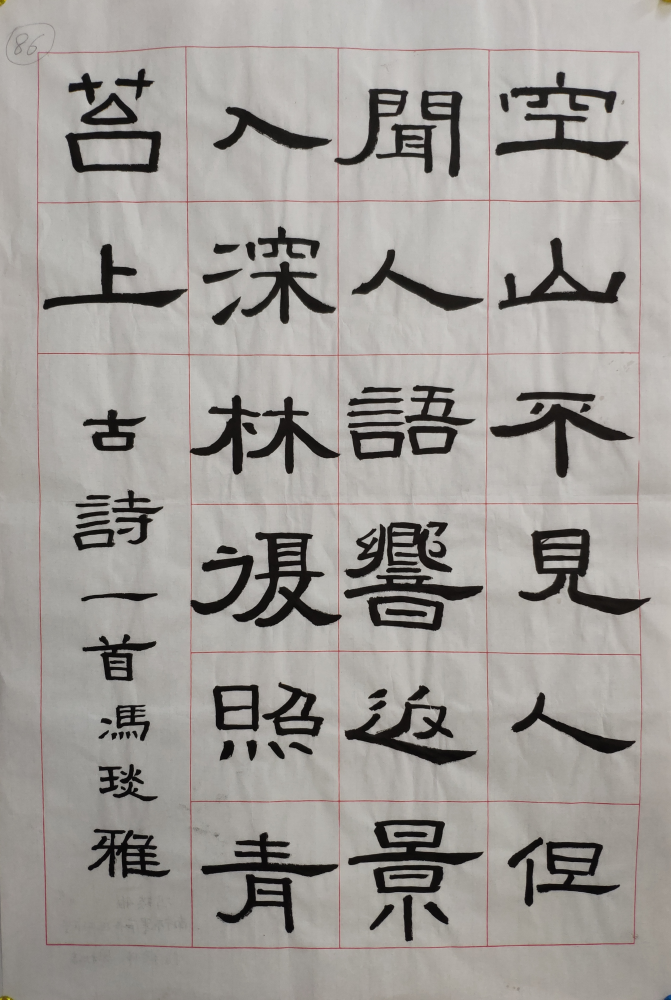 空山不見人但
聞人語響返景
入深林復照青
苔上
古詩一首馮琰雅
86